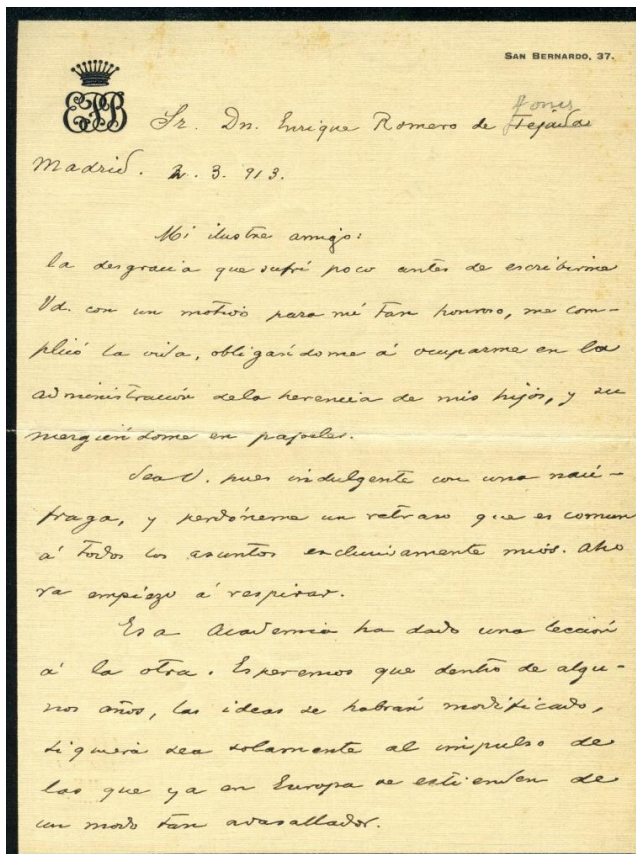 SAN BERNARDO, 37.
EPB
Torres
Sr. Dn. Enrique Romero de Tejada
Madrid. 2. 3. 913.
Mi ilustre amigo:
la desgracia que sufrí poco antes de escribirme
Vd. con un motivo para mí tan honroso, me com-
plicó la vida, obligandome á ocuparme en la
administración dela herencia de mis hijos, y su
mergiendome en papeles.
Sea V. pues indulgente con una náu-
fraga, y perdóneme un retraso que es comun
á todos los asuntos exclusivamente mios. Aho
ra empiezo á respirar.
Esa Academia ha dado una lección
á la otra. Esperemos que dentro de algu-
nos años, las ideas se habrán modificado,
siquiera sea solamente al impulso de
las que ya en Europa se estienden de
un modo tan avasallador.